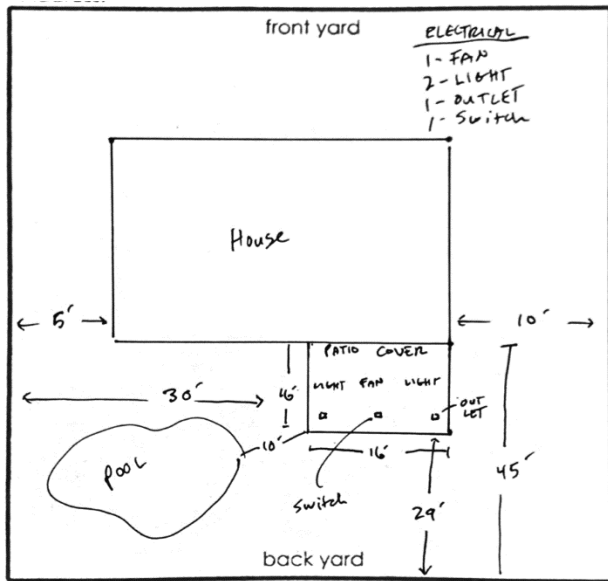 front yard
ELECTRICAL
1- FAN
2- LIGHT
1- OUTLET
1- Switch
House
5'
10'
PATIO COVER
LIGHT FAN LIGHT
30'
16'
OUT
LET
10'
16'
POOL
Switch
45'
29'
back yard